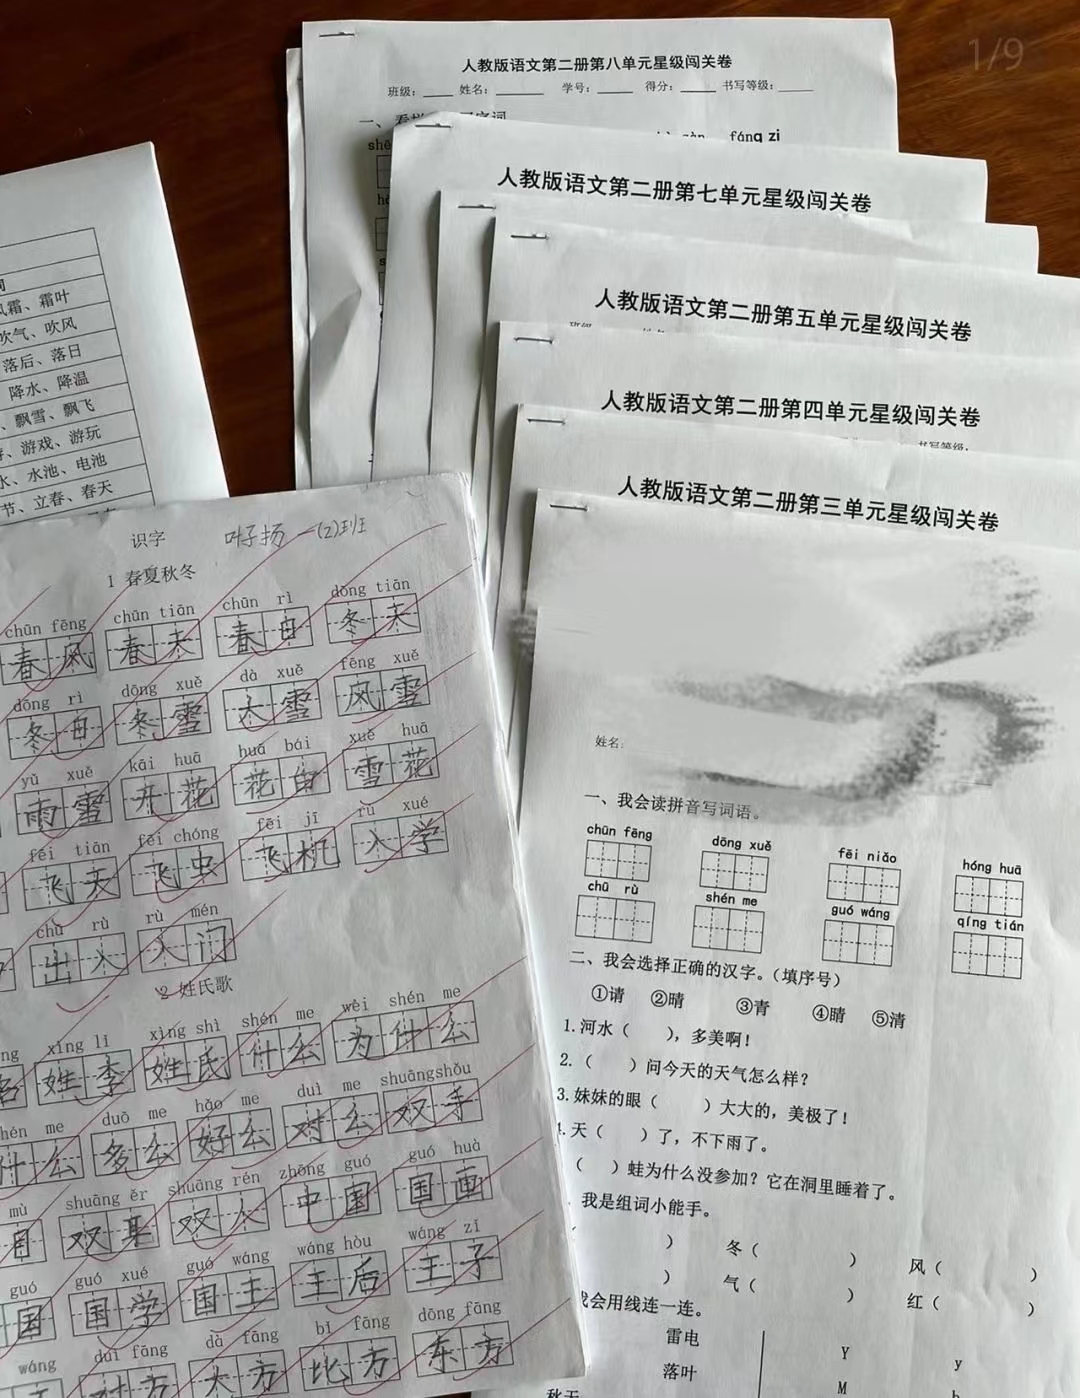 1/9
人教版语文第二册第八单元星级闯关卷
班级：____ 姓名：______ 学号：____ 得分：____ 书写等级：____
fáng zi
人教版语文第二册第七单元星级闯关卷
人教版语文第二册第五单元星级闯关卷
人教版语文第二册第四单元星级闯关卷
人教版语文第二册第三单元星级闯关卷
姓名：
一、我会读拼音写词语。
chūn fēng dōng xuě fēi niǎo hóng huā
chū rù shén me guó wáng qíng tián
二、我会选择正确的汉字。（填序号）
①请 ②晴 ③青 ④睛 ⑤清
1.河水（ ），多美啊！
2.（ ）问今天的天气怎么样？
3.妹妹的眼（ ）大大的，美极了！
天（ ）了，不下雨了。
（ ）蛙为什么没参加？它在洞里睡着了。
我是组词小能手。
（ ） 冬（ ） 风（ ）
（ ） 气（ ） 红（ ）
会用线连一连。
雷电 Y y
落叶 M h
秋天
霜、霜叶
吹气、吹风
落后、落日
降水、降温
、飘雪、飘飞
、游戏、游玩
水、水池、电池
节、立春、春天
识字 叶子扬 一(2)班
1 春夏秋冬
chūn fēng chūn tiān chūn rì dōng tiān
春风 春天 春日 冬天
dōng rì dōng xuě dà xuě fēng xuě
冬日 冬雪 大雪 风雪
yǔ xuě kāi huā huā bái xuě huā
雨雪 开花 花白 雪花
fēi tiān fēi chóng fēi jī rù xué
飞天 飞虫 飞机 入学
chū rù rù mén
出入 入门
2 姓氏歌
xìng lǐ xìng shì shén me wèi shén me
姓李 姓氏 什么 为什么
me duō me hǎo me duì me shuāngshǒu
什么 多么 好么 对么 双手
mù shuāng ěr shuāng rén zhōng guó guó huà
目 双耳 双人 中国 国画
guó guó xué guó wáng wáng hòu wáng zǐ
国 国学 国王 王后 王子
wáng duì fāng dà fāng bǐ fāng dōng fāng
王 对方 大方 比方 东方